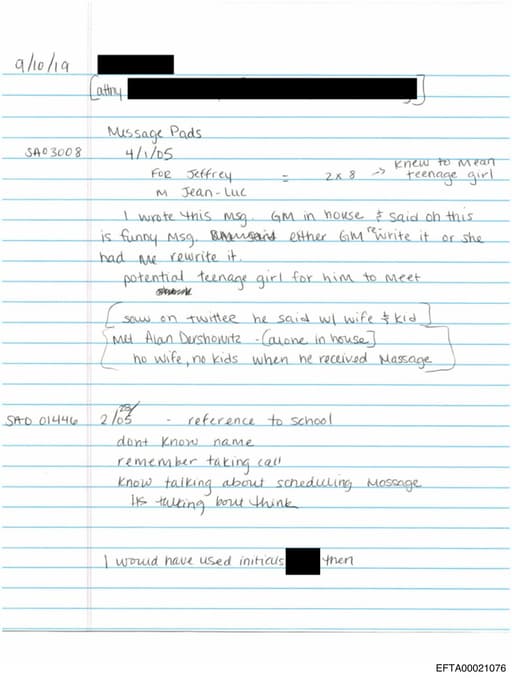 9/10/19
[attny ]
Message Pads
SAO 3008 4/1/05
FOR Jeffrey = 2 x 8 -> knew to mean teenage girl
M Jean-Luc
I wrote this msg. GM in house & said oh this
is funny msg. either GM rewrite it or she
had me rewrite it.
potential teenage girl for him to meet
[saw on twitter he said w/ wife & kid]
[Met Alan Dershowitz - (alone in house)
no wife, no kids when he received Massage]
SAO 01446 2/28/05 - reference to school
dont know name
remember taking call
know talking about scheduling Massage
talking bout think
I would have used initials then
EFTA00021076